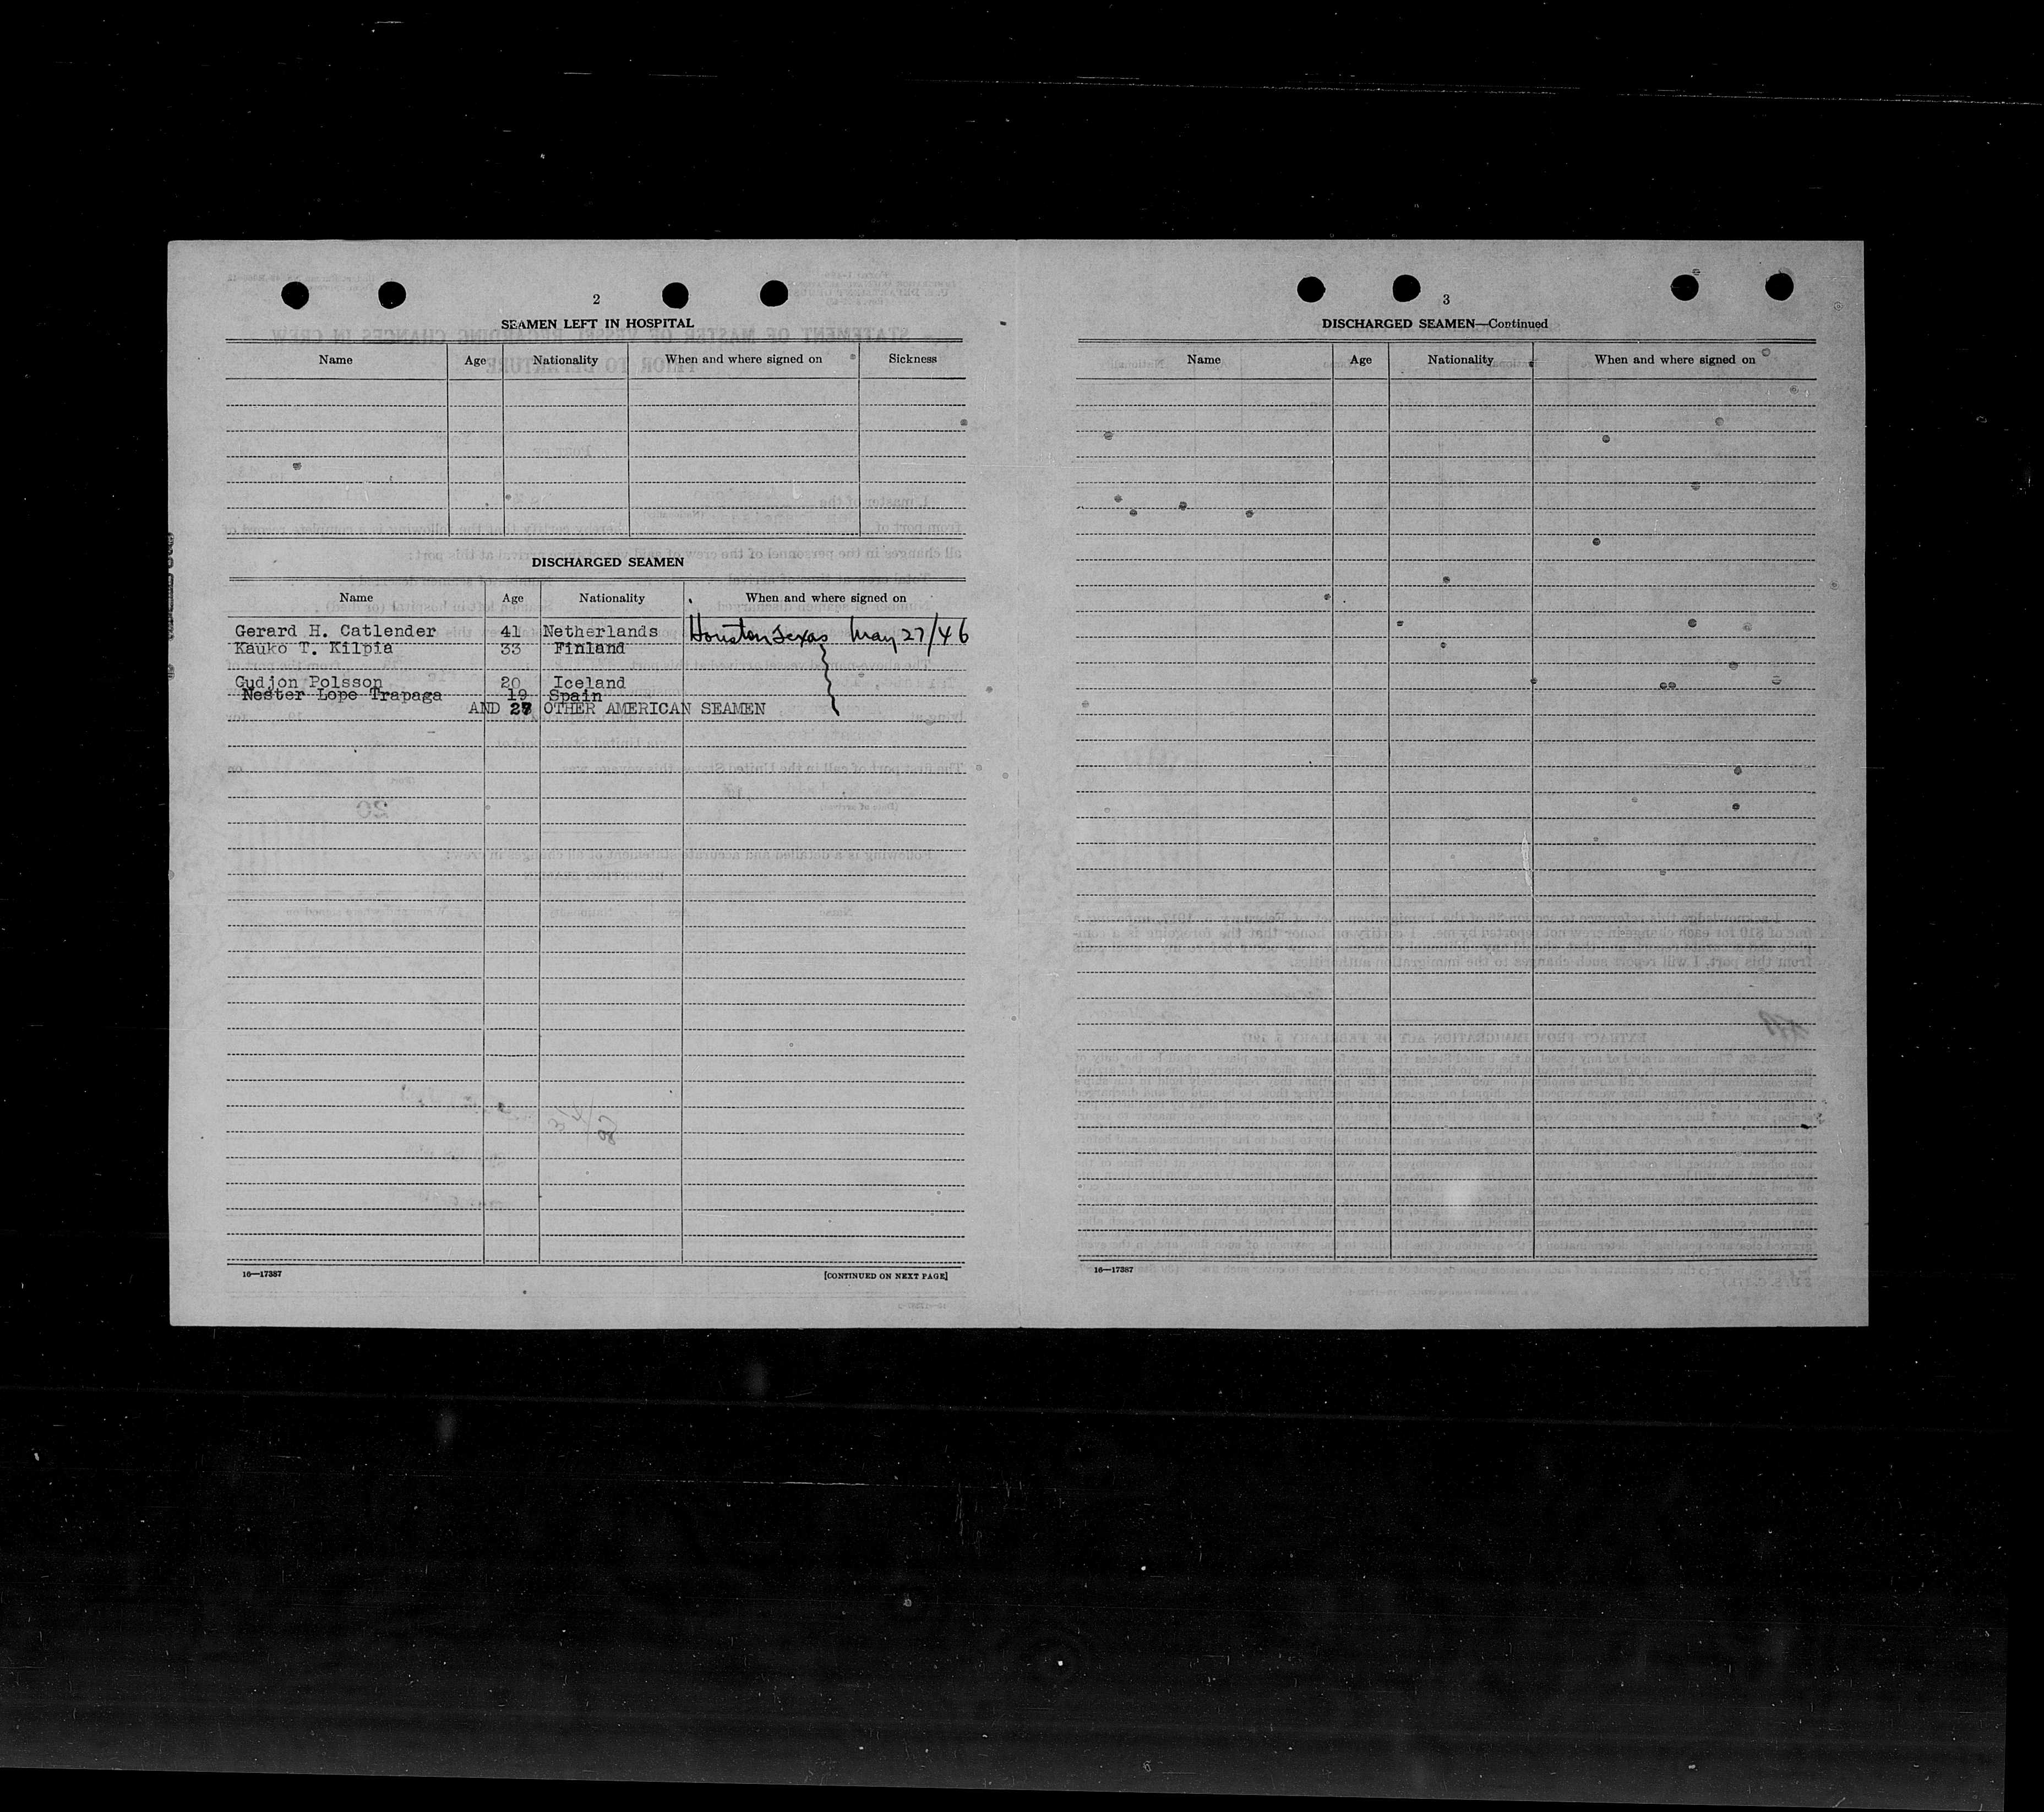 2
SEAMEN LEFT IN HOSPITAL
Name Age Nationality When and where signed on Sickness
DISCHARGED SEAMEN
Name Age Nationality When and where signed on
Gerard H. Catlender 41 Netherlands Houston Texas May 27/46
Kauko T. Kilpia 33 Finland
Gudjon Polsson 20 Iceland
Nester Lope Trapaga 19 Spain
AND 27 OTHER AMERICAN SEAMEN
16—17387 [CONTINUED ON NEXT PAGE]
3
DISCHARGED SEAMEN—Continued
Name Age Nationality When and where signed on
16—17387